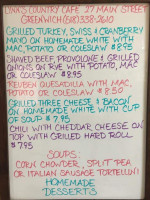 TINA'S COUNTRY CAFE 27 MAIN STREET
GREENWICH (518) 338-2610
GRILLED TURKEY, SWISS & CRANBERRY
MAYO ON HOMEMADE WHITE WITH
MAC, POTATO OR COLESLAW $8.95
SHAVED BEEF, PROVOLONE & GRILLED
ONIONS ON RYE WITH POTATO, MAC
OR COLESLAW $8.95
REUBEN QUESADILLA WITH MAC,
POTATO OR COLESLAW $8.50
GRILLED THREE CHEESE & BACON
ON HOMEMADE WHITE WITH CUP
OF SOUP $7.95
CHILI WITH CHEDDAR CHEESE ON
TOP WITH GRILLED HARD ROLL
$7.95
SOUPS:
CORN CHOWDER, SPLIT PEA
OR ITALIAN SAUSAGE TORTELLINI
HOMEMADE
DESSERTS